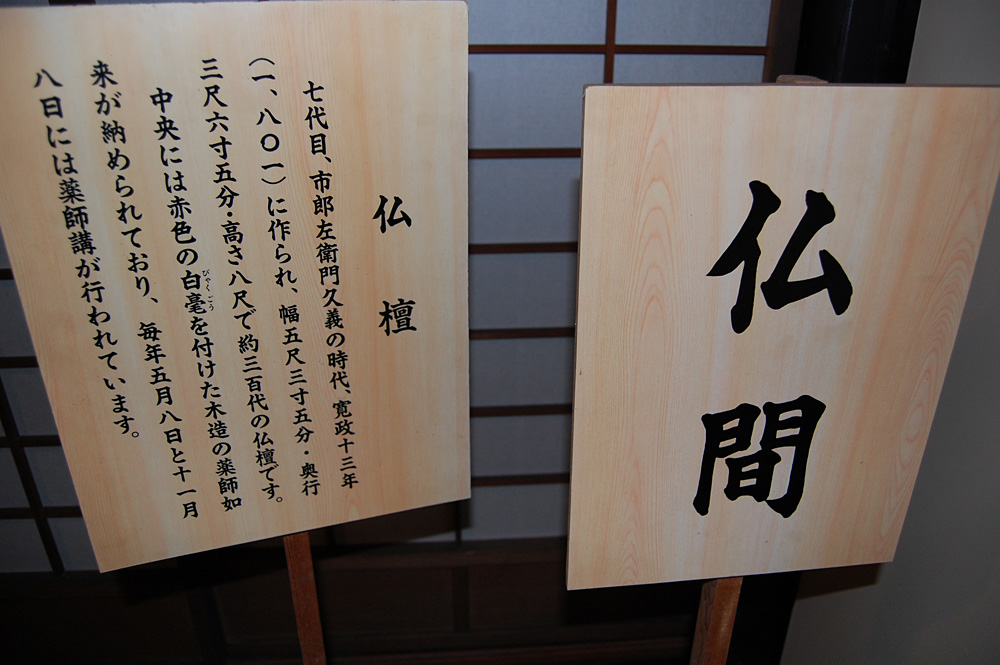 仏間
仏檀
七代目、市郎左衛門久義の時代、寛政十三年
(一、八〇一)に作られ、幅五尺三寸五分・奥行
三尺六寸五分・高さ八尺で約三百代の仏檀です。
中央には赤色の白毫を付けた木造の薬師如
びゃくごう
来が納められており、毎年五月八日と十一月
八日には薬師講が行われています。